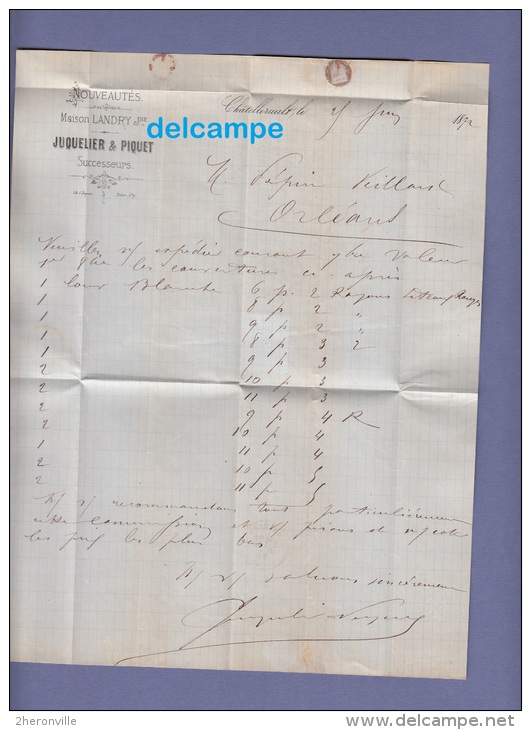 NOUVEAUTÉS.
Maison LANDRY Jne
JUQUELIER & PIQUET
Successeurs.
Châtellerault, le 25 Juin 1872
delcampe
M. Pépin Veillard
Orléans
Veuillez n/ expédier courant 7bre valeur
les couvertures ci après
1 laine Blanche 6 p. 2 Rayons
1 8 p 2 "
1 9 p 2 "
1 8 p 3 2
1 9 p 3
2 10 p 3
2 11 p 3
2 9 p 4 R
2 10 p 4
1 11 p 4
2 10 p 5
2 11 p 5
N/ v/ recommandons tout particulièrement
cette commission et v/ prions de
les prix les plus bas
N/ v/ saluons sincèrement
2heronville
www.delcampe.net